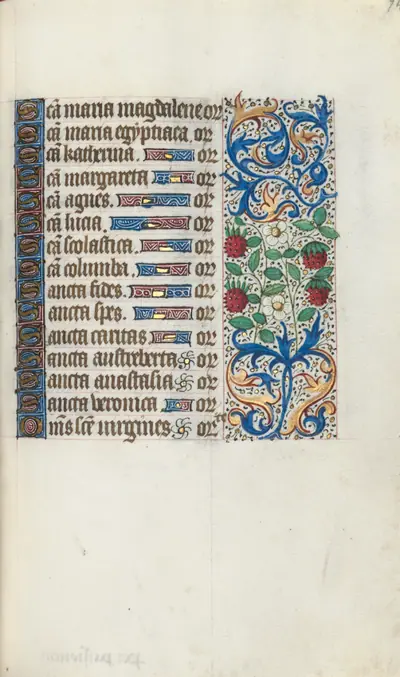 Scā maria magdalene or
Scā maria egyptiaca or
Scā katherina. or
Scā margareta or
Scā agnes. or
Scā lucia or
Scā scolastica. or
Scā columba. or
Sancta fides. or
Sancta spes. or
Sancta caritas or
Sancta austreberta or
Sancta anastasia or
Sancta veronica or
Om̄s scē uirgines or